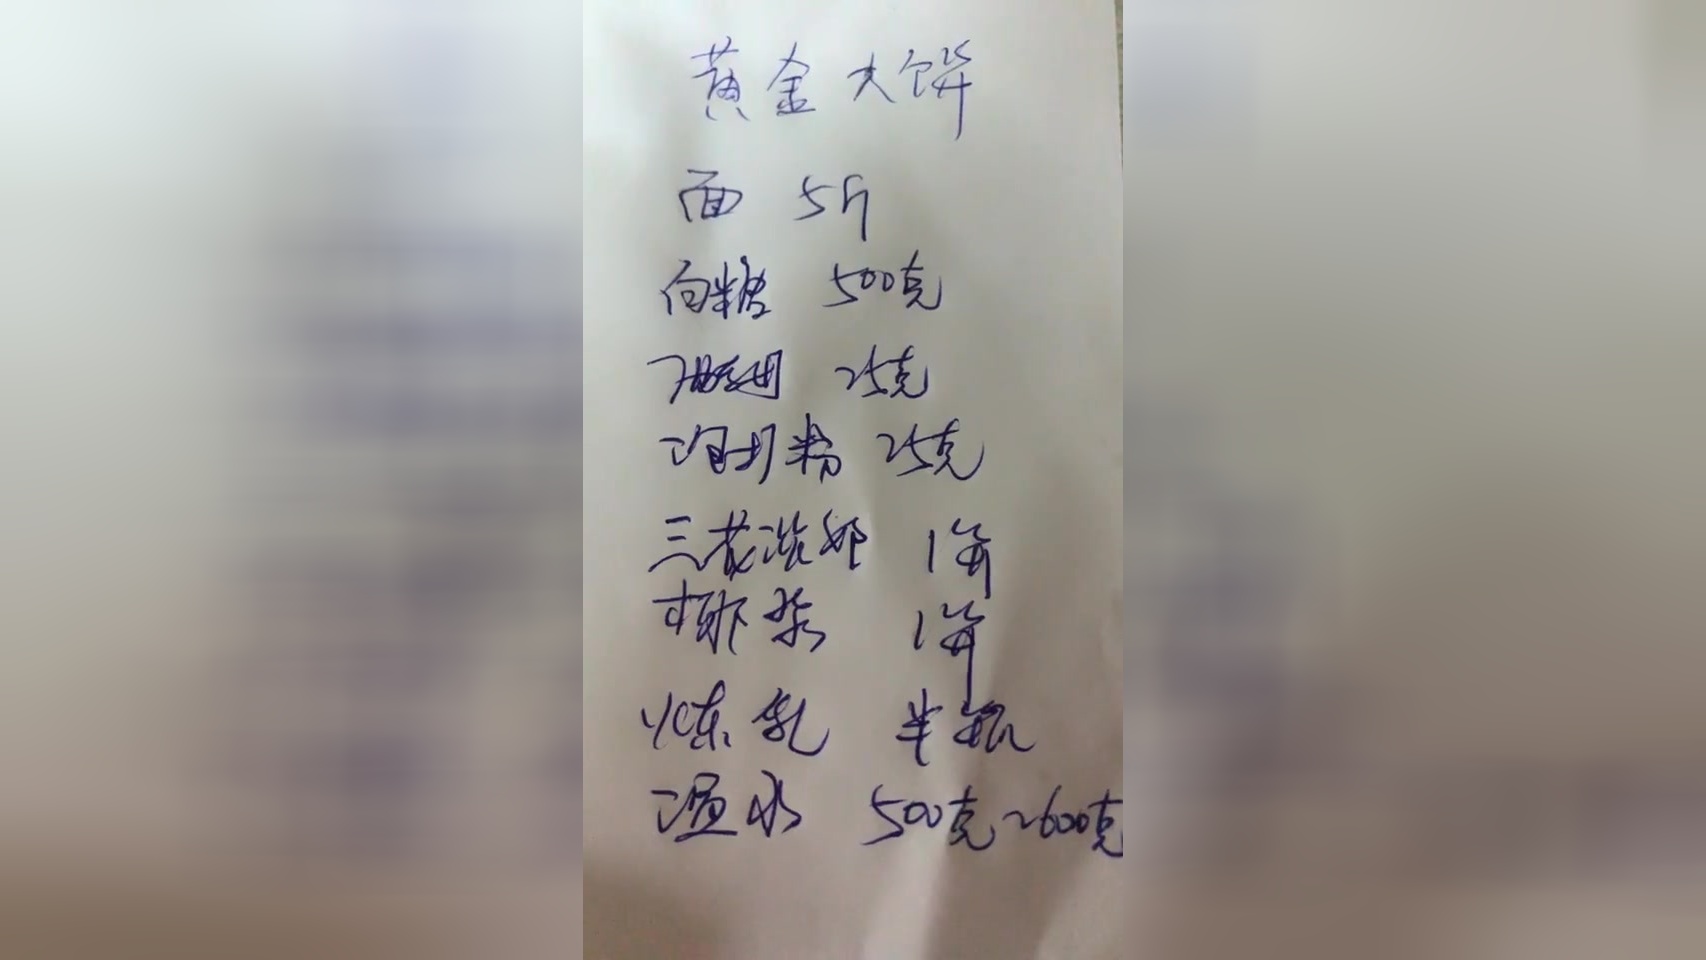 黄金大饼
面 5斤
白糖 500克
酵母 25克
泡打粉 25克
三花淡奶 1瓶
椰浆 1瓶
炼乳 半瓶
温水 500克~600克